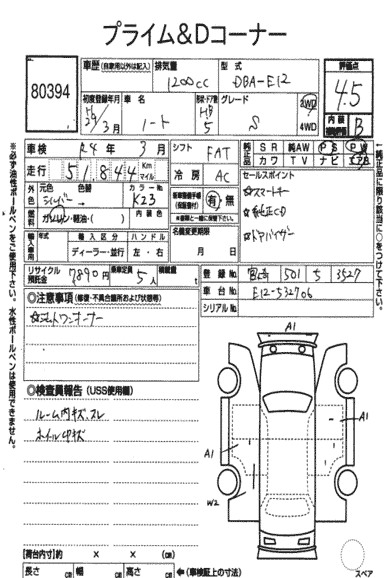 プライム&Dコーナー
80394
車歴(自家用以外は記入) 排気量 型式 評価点
1200cc DBA-E12 4.5
初度登録年月 車名 形状・ドア数 グレード 2WD
29年3月 ノート HB 5 S 4WD 内装 B
車検 R4年 3月 シフト FAT 純正品 SR 純AW PS PW
走行 51844 Km マイル 冷房 AC カワ TV ナビ エアB
外色 元色 色替 カラーNo. 有・無 セールスポイント
シルバー → K23 ☆スマートキー
燃料 ガソリン・軽油・( ) 内装色 ☆純正CD
輸入車用 年式 輸入区分 ハンドル 名義変更期限 ☆ドアバイザー
ディーラー・並行 左・右 月 日
リサイクル預託金 7890円 乗車定員 5人 積載量 t 登録No. 宮崎 501 5 3527
◎注意事項(修復・不具合箇所および状態等) 車台No. E12-532706
シリアルNo.
☆ワンオーナー
◎検査員報告(USS使用欄)
ルーム内キズ、スレ
ホイル中キズ
A1
A1
A1
W2
【荷台内寸】約 × × (cm)
長さ cm 幅 cm 高さ cm ←(車検証上の寸法)
スペア
※必ず油性ボールペンをご使用下さい。水性ボールペンは使用できません。
↑純正品に限り該当に○をつけて下さい。